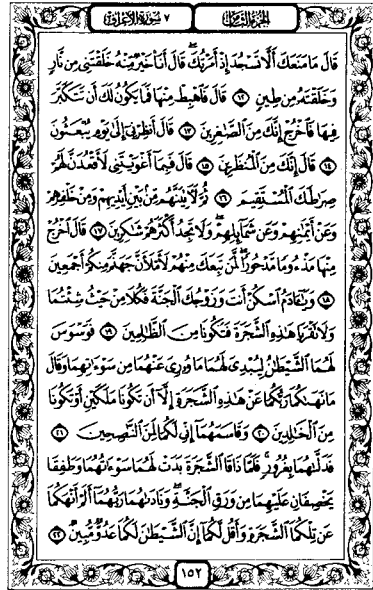 الجزء الثامن ٧ سورة الأعراف
قَالَ مَا مَنَعَكَ أَلَّا تَسْجُدَ إِذْ أَمَرْتُكَ ۖ قَالَ أَنَا۠ خَيْرٌ مِّنْهُ خَلَقْتَنِى مِن نَّارٍ
وَخَلَقْتَهُۥ مِن طِينٍ ١٢ قَالَ فَٱهْبِطْ مِنْهَا فَمَا يَكُونُ لَكَ أَن تَتَكَبَّرَ
فِيهَا فَٱخْرُجْ إِنَّكَ مِنَ ٱلصَّٰغِرِينَ ١٣ قَالَ أَنظِرْنِىٓ إِلَىٰ يَوْمِ يُبْعَثُونَ
١٤ قَالَ إِنَّكَ مِنَ ٱلْمُنظَرِينَ ١٥ قَالَ فَبِمَآ أَغْوَيْتَنِى لَأَقْعُدَنَّ لَهُمْ
صِرَٰطَكَ ٱلْمُسْتَقِيمَ ١٦ ثُمَّ لَءَاتِيَنَّهُم مِّنۢ بَيْنِ أَيْدِيهِمْ وَمِنْ خَلْفِهِمْ
وَعَنْ أَيْمَٰنِهِمْ وَعَن شَمَآئِلِهِمْ ۖ وَلَا تَجِدُ أَكْثَرَهُمْ شَٰكِرِينَ ١٧ قَالَ ٱخْرُجْ
مِنْهَا مَذْءُومًا مَّدْحُورًا ۖ لَّمَن تَبِعَكَ مِنْهُمْ لَأَمْلَأَنَّ جَهَنَّمَ مِنكُمْ أَجْمَعِينَ
١٨ وَيَٰٓـَٔادَمُ ٱسْكُنْ أَنتَ وَزَوْجُكَ ٱلْجَنَّةَ فَكُلَا مِنْ حَيْثُ شِئْتُمَا
وَلَا تَقْرَبَا هَٰذِهِ ٱلشَّجَرَةَ فَتَكُونَا مِنَ ٱلظَّٰلِمِينَ ١٩ فَوَسْوَسَ
لَهُمَا ٱلشَّيْطَٰنُ لِيُبْدِىَ لَهُمَا مَا وُۥرِىَ عَنْهُمَا مِن سَوْءَٰتِهِمَا وَقَالَ
مَا نَهَىٰكُمَا رَبُّكُمَا عَنْ هَٰذِهِ ٱلشَّجَرَةِ إِلَّآ أَن تَكُونَا مَلَكَيْنِ أَوْ تَكُونَا
مِنَ ٱلْخَٰلِدِينَ ٢٠ وَقَاسَمَهُمَآ إِنِّى لَكُمَا لَمِنَ ٱلنَّٰصِحِينَ ٢١
فَدَلَّىٰهُمَا بِغُرُورٍ ۚ فَلَمَّا ذَاقَا ٱلشَّجَرَةَ بَدَتْ لَهُمَا سَوْءَٰتُهُمَا وَطَفِقَا
يَخْصِفَانِ عَلَيْهِمَا مِن وَرَقِ ٱلْجَنَّةِ ۖ وَنَادَىٰهُمَا رَبُّهُمَآ أَلَمْ أَنْهَكُمَا
عَن تِلْكُمَا ٱلشَّجَرَةِ وَأَقُل لَّكُمَآ إِنَّ ٱلشَّيْطَٰنَ لَكُمَا عَدُوٌّ مُّبِينٌ ٢٢
١٥٢